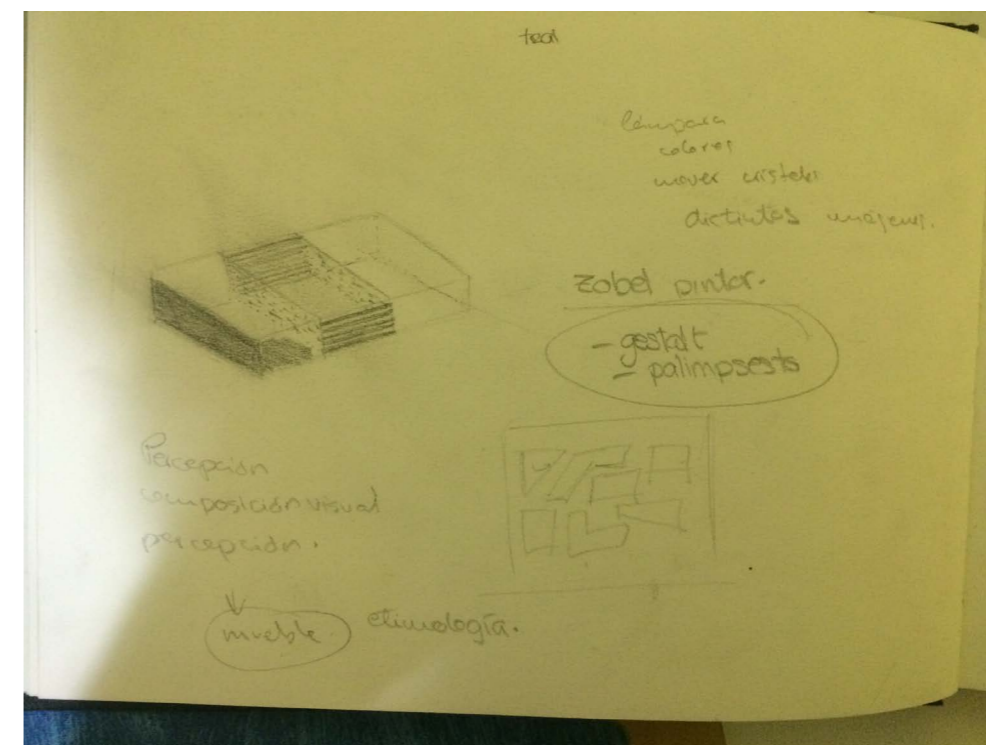 lámpara
colores
mover cristales
distintas imágenes.
zobel pintor.
- gestalt
- palimpsests
Percepción
composición visual
percepción.
mueble etimología.